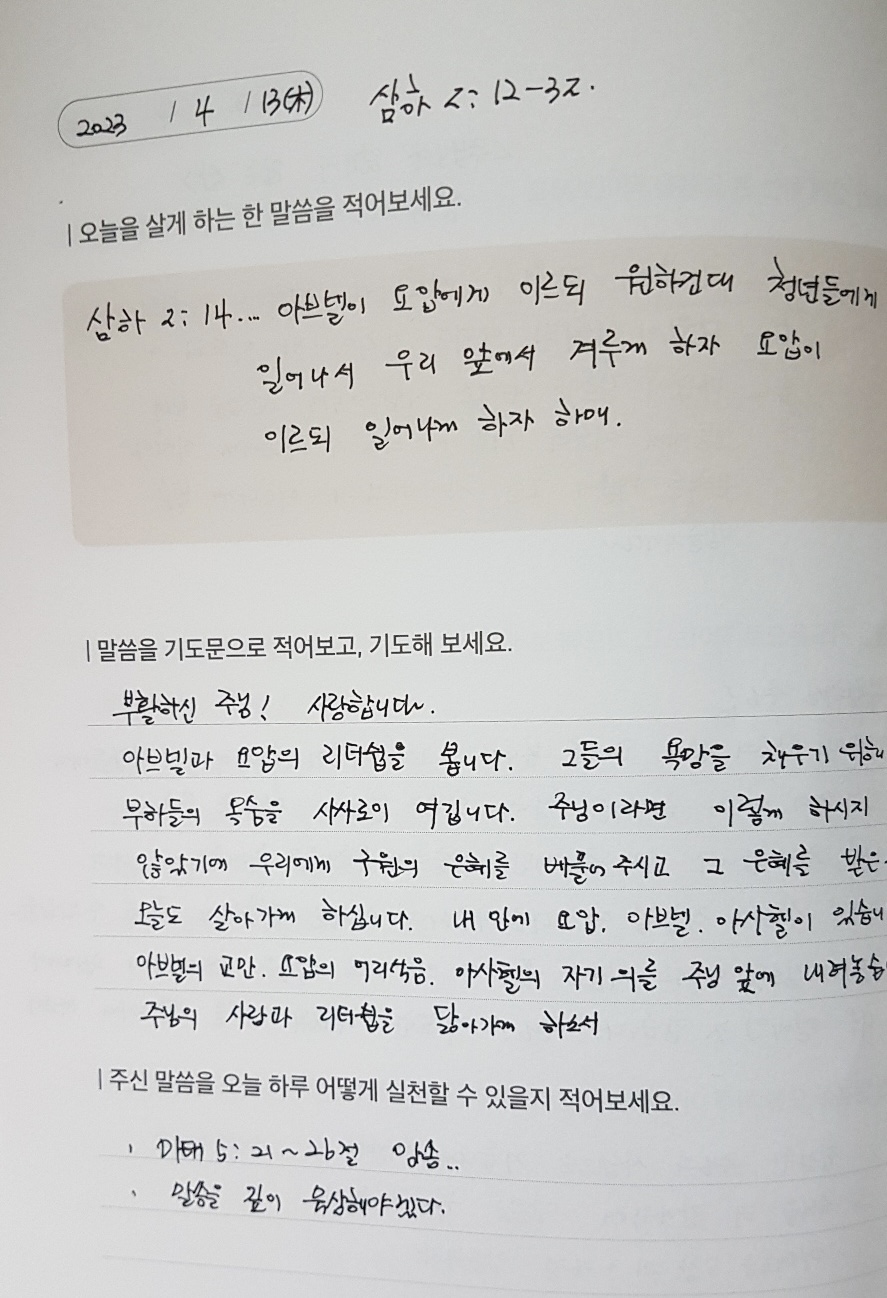 2023 / 4 / 13(木) 삼하 2:12-32.
| 오늘을 살게 하는 한 말씀을 적어보세요.
삼하 2:14... 아브넬이 요압에게 이르되 원하건대 청년들에게
일어나서 우리 앞에서 겨루게 하자 요압이
이르되 일어나게 하자 하매.
| 말씀을 기도문으로 적어보고, 기도해 보세요.
부활하신 주님! 사랑합니다.
아브넬과 요압의 리더쉽을 봅니다. 그들의 욕망을 채우기 위해
부하들의 목숨을 사사로이 여깁니다. 주님이라면 이렇게 하시지
않았기에 우리에게 구원의 은혜를 베풀어 주시고 그 은혜를 받은
오늘도 살아가게 하십니다. 내 안에 요압. 아브넬. 아사헬이 있습니
아브넬의 교만. 요압의 어리석음. 아사헬의 자기 의를 주님 앞에 내려놓습
주님의 사랑과 리더쉽을 닮아가게 하소서
| 주신 말씀을 오늘 하루 어떻게 실천할 수 있을지 적어보세요.
· 마태 5:21~26절 암송..
· 말씀을 깊이 묵상해야겠다.